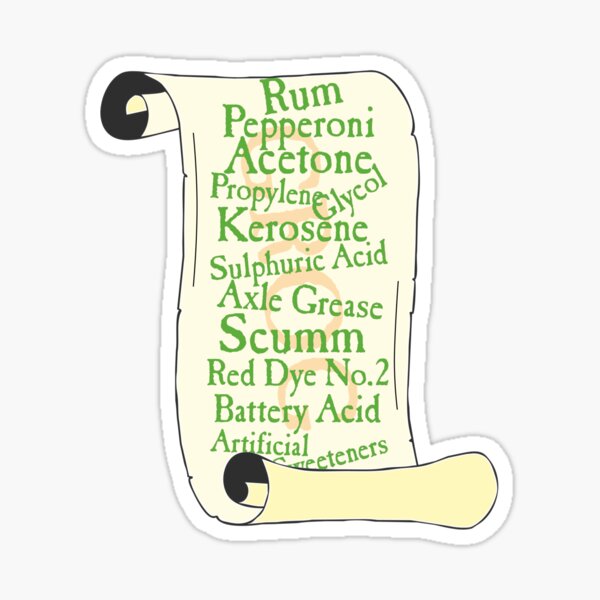 Rum
Pepperoni
Acetone
Propylene Glycol
Kerosene
Sulphuric Acid
Axle Grease
Scumm
Red Dye No.2
Battery Acid
Artificial
Sweeteners
GROG